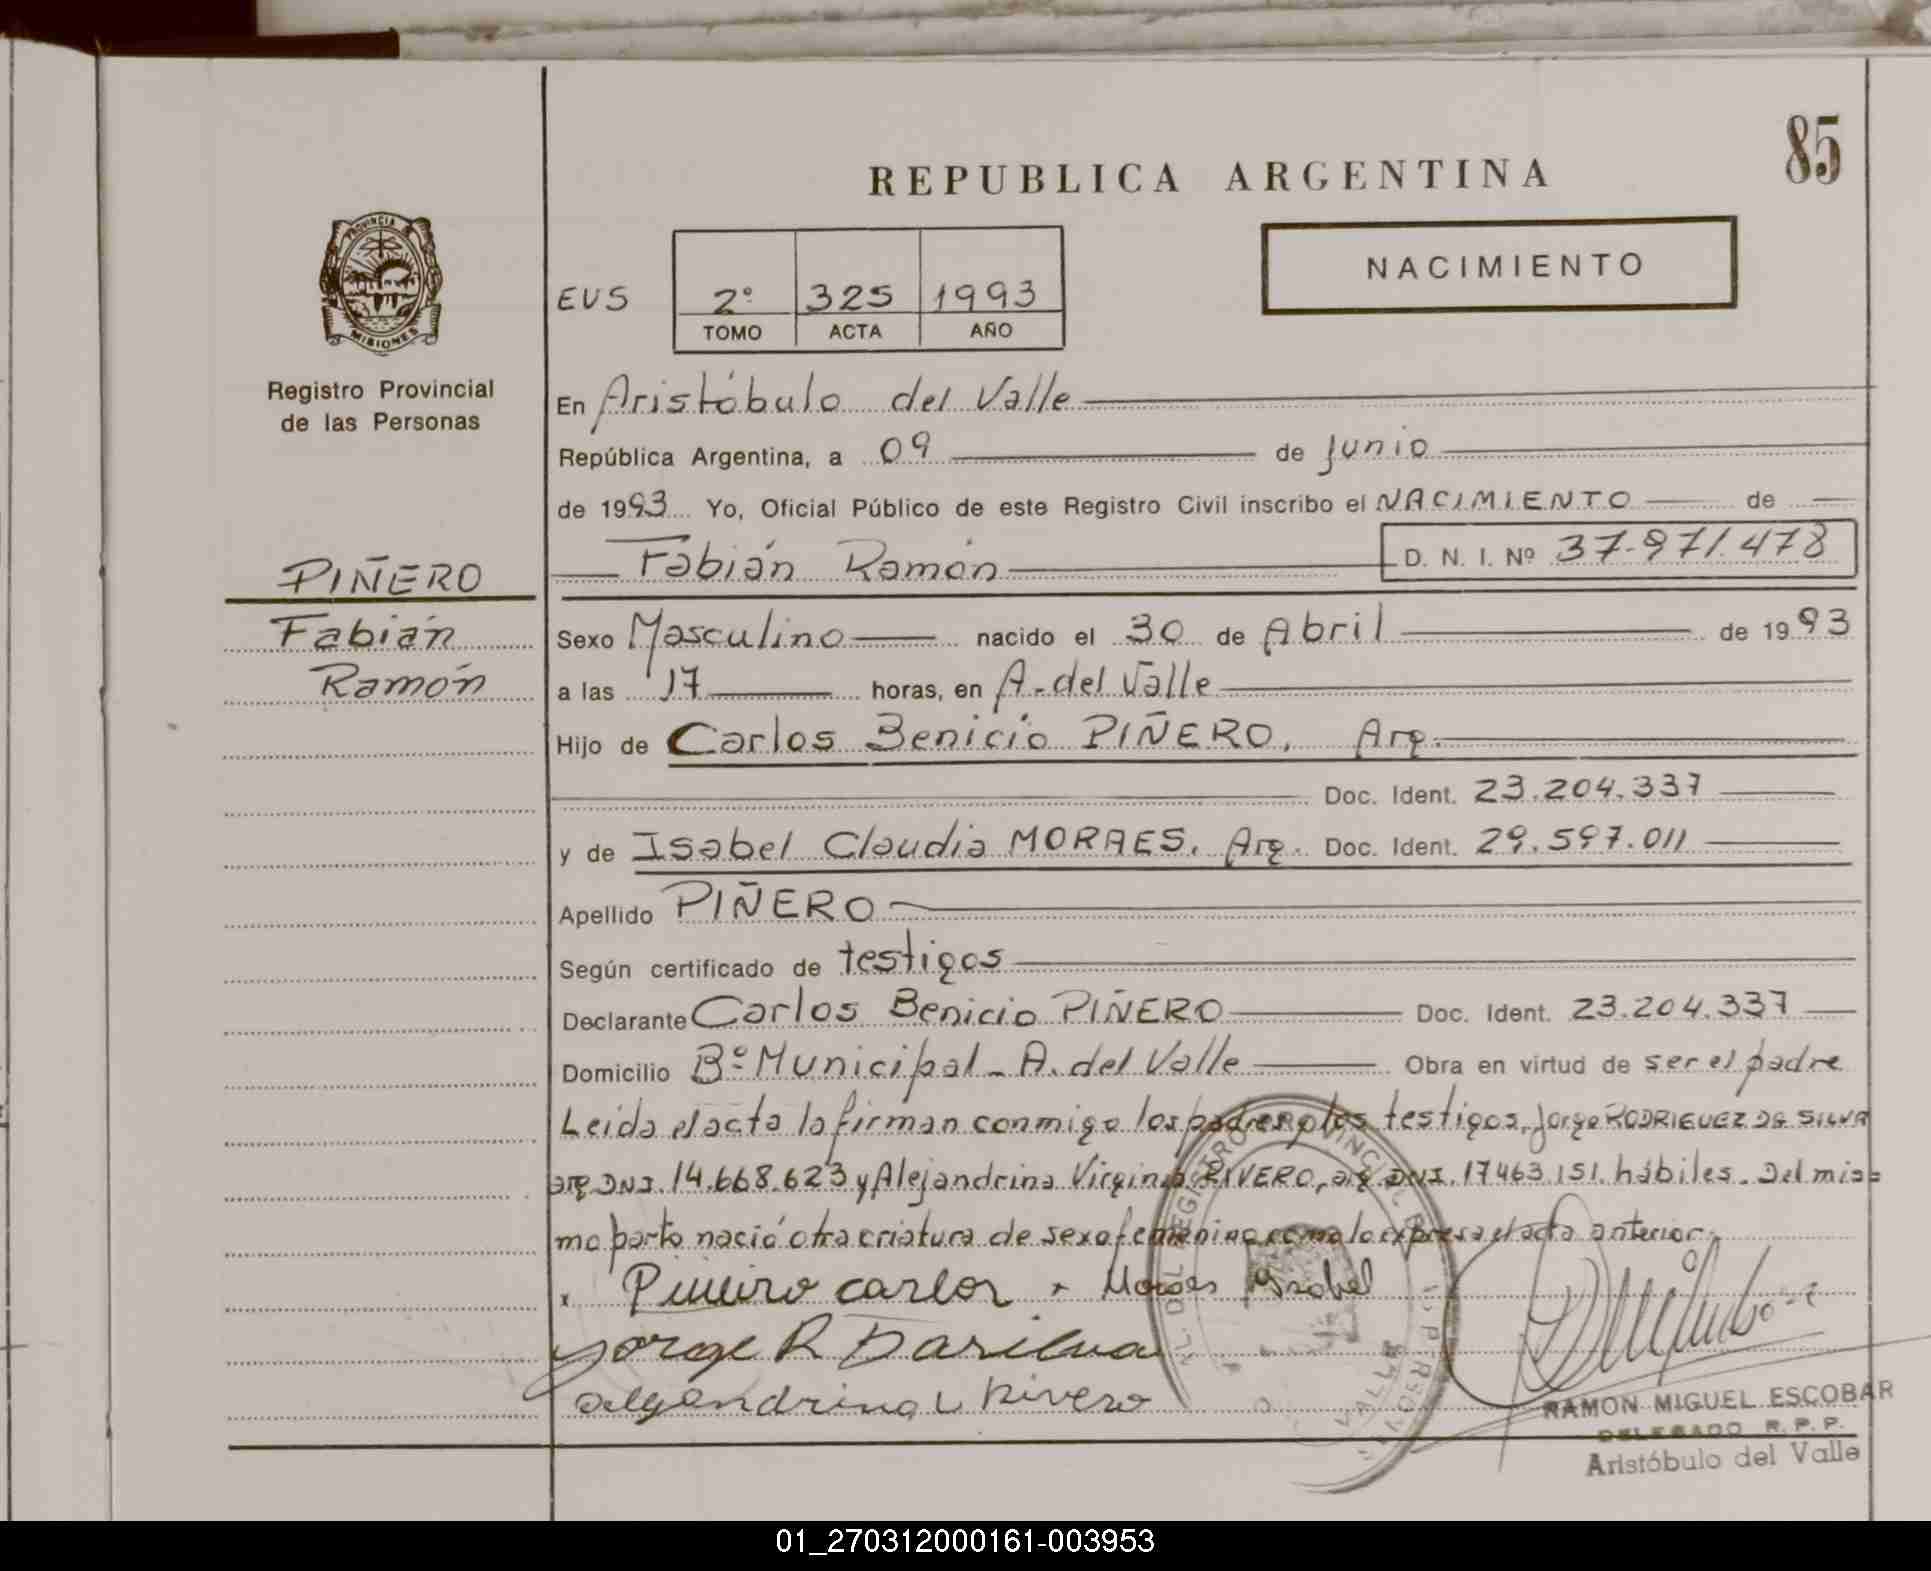 85
REPUBLICA ARGENTINA
PROVINCIA DE
MISIONES
NACIMIENTO
EUS 2º 325 1993
TOMO ACTA AÑO
Registro Provincial
de las Personas
En Aristóbulo del Valle
República Argentina, a 09 de Junio
de 1993 Yo, Oficial Público de este Registro Civil inscribo el NACIMIENTO de
PIÑERO
Fabián Ramón D. N. I. Nº 37.971.478
Fabián
Ramón
Sexo Masculino nacido el 30 de Abril de 1993
a las 17 horas, en A. del Valle
Hijo de Carlos Benicio PIÑERO, Arg.
Doc. Ident. 23.204.337
y de Isabel Claudia MORAES. Arg. Doc. Ident. 29.597.011
Apellido PIÑERO
Según certificado de testigos
Declarante Carlos Benicio PIÑERO Doc. Ident. 23.204.337
Domicilio Bº Municipal - A. del Valle Obra en virtud de ser el padre
Leida el acta la firman conmigo los padres y los testigos, Jorge RODRIGUEZ DA SILVA
arg DNI. 14.668.623 y Alejandrina Virginia RIVERO, arg DNI. 17463.151. hábiles. Del mis=
mo parto nació otra criatura de sexo femenino como lo expresa el acta anterior.
x Piñeiro carlos x Moraes Isabel
Jorge R Dasilva
alejandrina v Rivero
RAMON MIGUEL ESCOBAR
DELEGADO R. P. P.
Aristóbulo del Valle
01_270312000161-003953